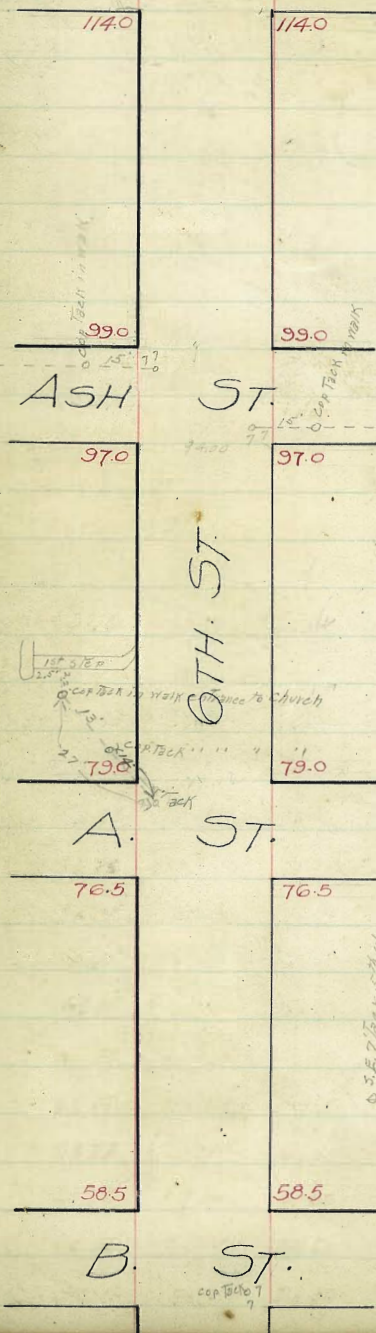 114.0 114.0
cop Tack in walk
99.0 99.0
15' 7?
cop Tack in walk
ASH ST.
15'
7?
97.0 97.0
94.00
6TH. ST
1st step
2.5'
cop Tack in walk entrance to church
13'
cop Tack " " " "
27
79.0 79.0
Tack
A. ST.
76.5 76.5
58.5 58.5
B. ST.
cop Tack 7
7